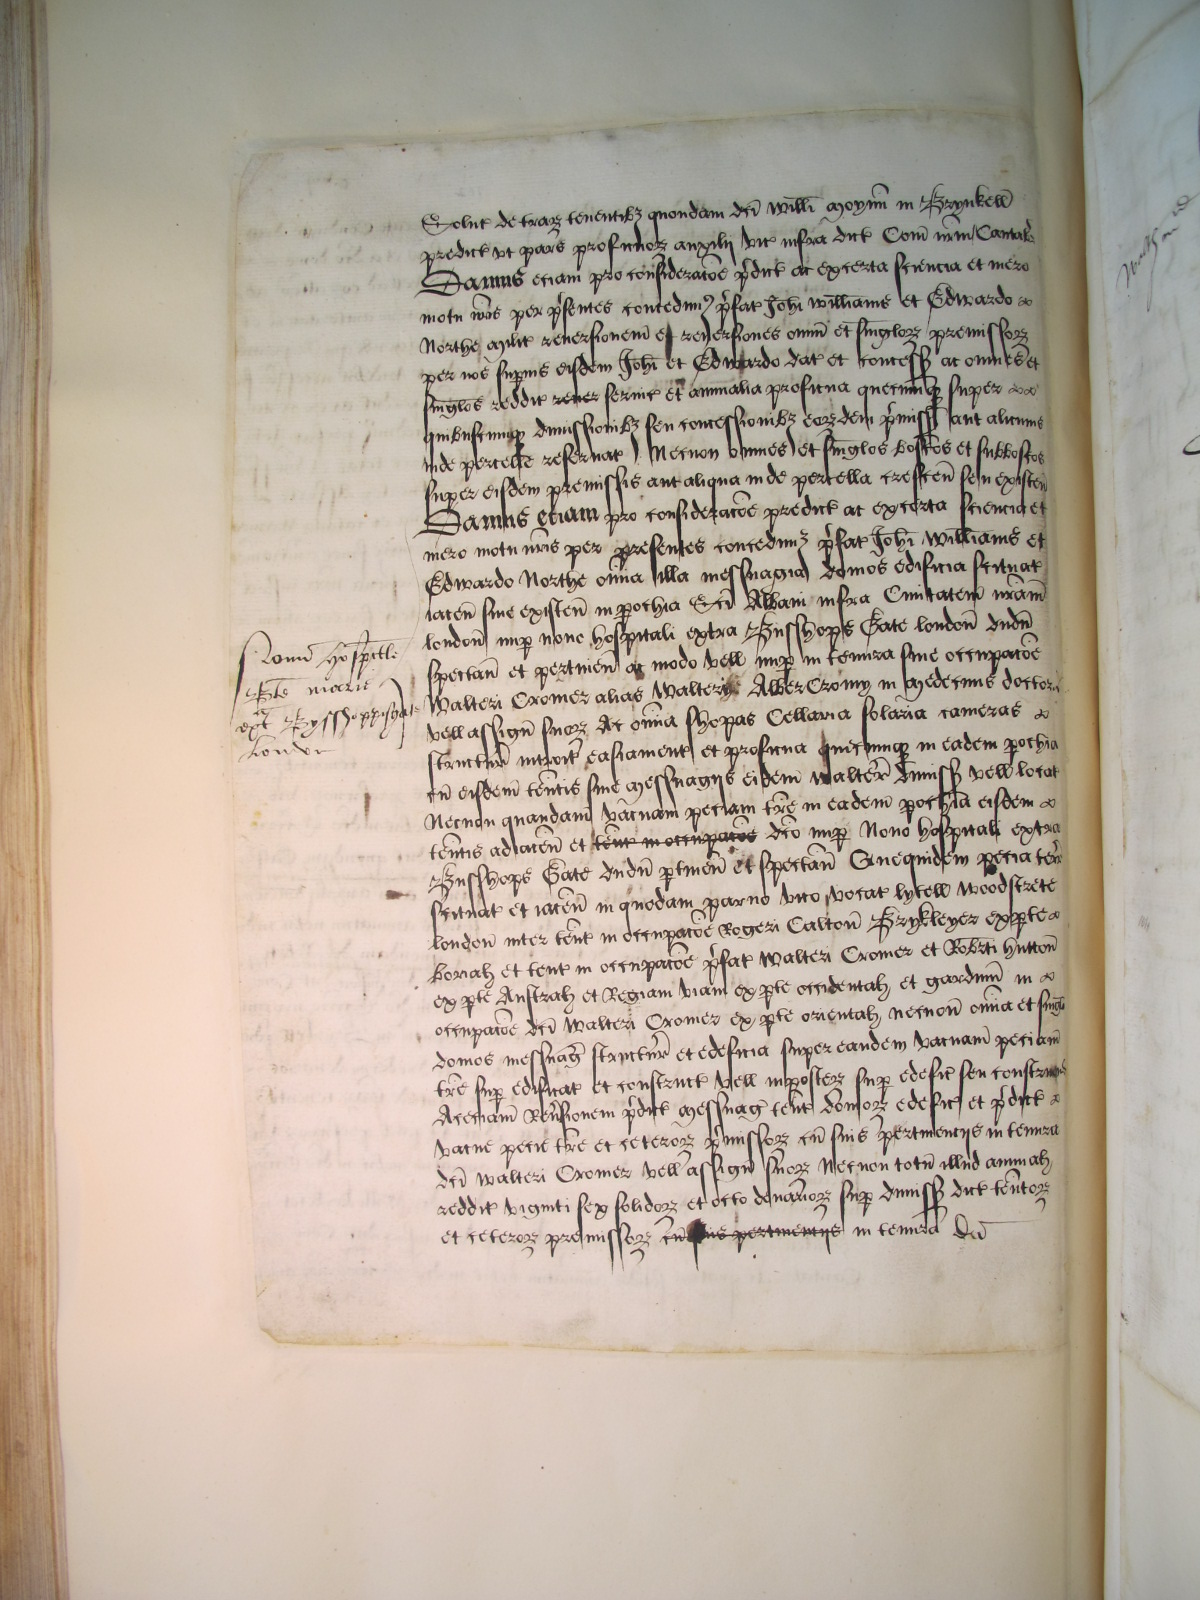 Solut de terris tenentibz quondam dci Willi Moyun in Brynkell
predict ut pars proficuorz auxilij vic infra dict Com nrm Cantabr
Damus eciam pro consideracoe pdict ac ex certa sciencia et mero
motu nris per psentes concedimus pfat Johi Williams et Edwardo
Northe Milit reversionem et reversiones omi et singlorz premissorz
per nos superius eisdem Johi et Edwardo dat et concess ac omnes et
singlos reddit rever servic et annualia proficua quecumqz super
quibuscumqz dimissionibz seu concessionibz eorzdem pmiss aut alicuius
inde percelle reservat Necnon omnes et singlos boscos et subboscos
super eisdem premissis aut aliqua inde percella crescen seu existen
Damus eciam pro consideracoe predict ac ex certa sciencia et
mero motu nris per presentes concedimz pfat Johi Williams et
Edwardo Northe omia illa messuagia domos edificia scituat
iacen sive existen in pochia Sci Albani infra Civitatem nram
london nup novo hospitali extra Busshops Gate london dudu
spectan et pertinen ac modo vell nup in tenura sive occupacoe
Walteri Cromer alias Walteri AlberCromy in Medecinis doctori
vell assign suorz Ac omia shopas Cellaria solaria cameras
structur introit easiament et proficua quecumqz in eadem pochia
cu eisdem tentis sive Messuagijs eidem Waltero dimiss vell locat
Necnon quandam vacuam peciam tre in eadem pochia eisdem
tentis adiacen et tent in occupacoe dco nup Novo hospitali extra
Busshops Gate dudu ptinen et spectan Quequidem pecia terre
scituat et iacen in quodam parvo vico vocat lytell Woodstrete
london inter tent in occupacoe Rogeri Calton Brykleyer ex pte
boriali et tent in occupacoe pfat Walteri Cromer et Robti Hutton
ex pte Australi et Regiam viam ex pte occidentali et gardinu in
occupacoe dci Walteri Cromer ex pte orientali necnon omia et singla
domos messuag structur et edeficia super eandem vacuam peciam
tre sup edificat et construct vell inposterz sup edefic seu construend
Aceciam Revsionem pdict Messuag tent domorz edefic et pdict
vacue pecie tre et ceterorz pmissorz cu suis pertinentijs in tenura
dci Walteri Cromer vell assign suorz Necnon totu illud annuali
reddit viginti sex solidorz et octo denariorz sup dimiss dict tentorz
et ceterorz premissorz cu suis pertinentijs in tenura dci
nup Hospitle
Bte marie
ext Bysshoppisgate
London